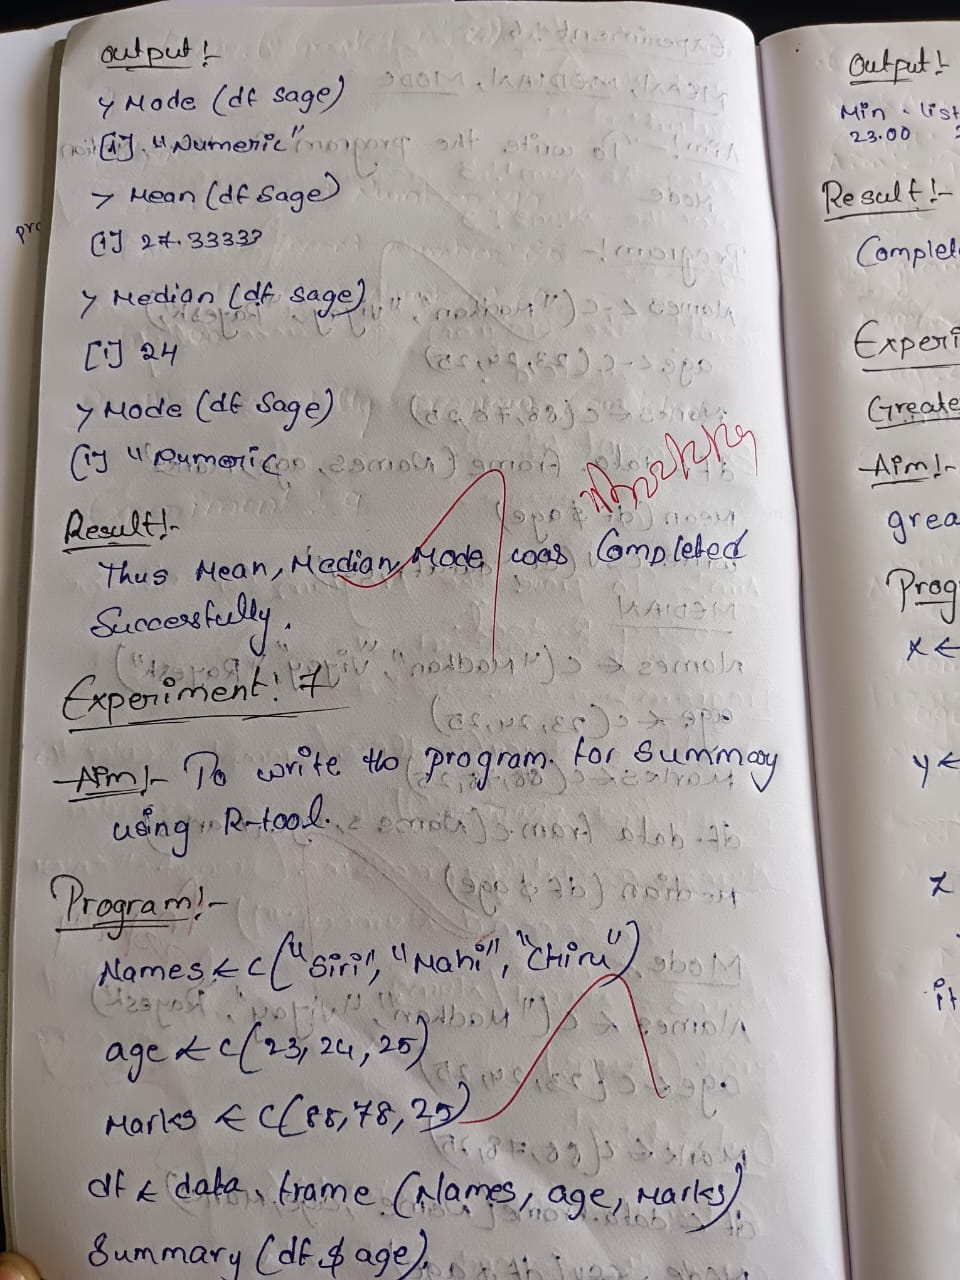 Output :-
> Mode (df $age)
[1] "Numeric"
> Mean (df $age)
[1] 27.33333
> Median (df $age)
[1] 24
> Mode (df $age)
[1] "Numeric
Result :-
Thus Mean, Median, Mode was Completed
Successfully.
Experiment: 7
Aim :- To write the program for Summary
using R-tool.
Program :-
Names < c("Siri", "Mahi", "Chiru")
age < c(23, 24, 25)
Marks < c(88, 78, 25)
df < data. frame (Names, age, Marks)
Summary (df $ age).
Output :-
Min . 1st
23.00
Result :-
Complet
Experi
Greate
Aim :-
grea
Prog
x <
y <
z
if